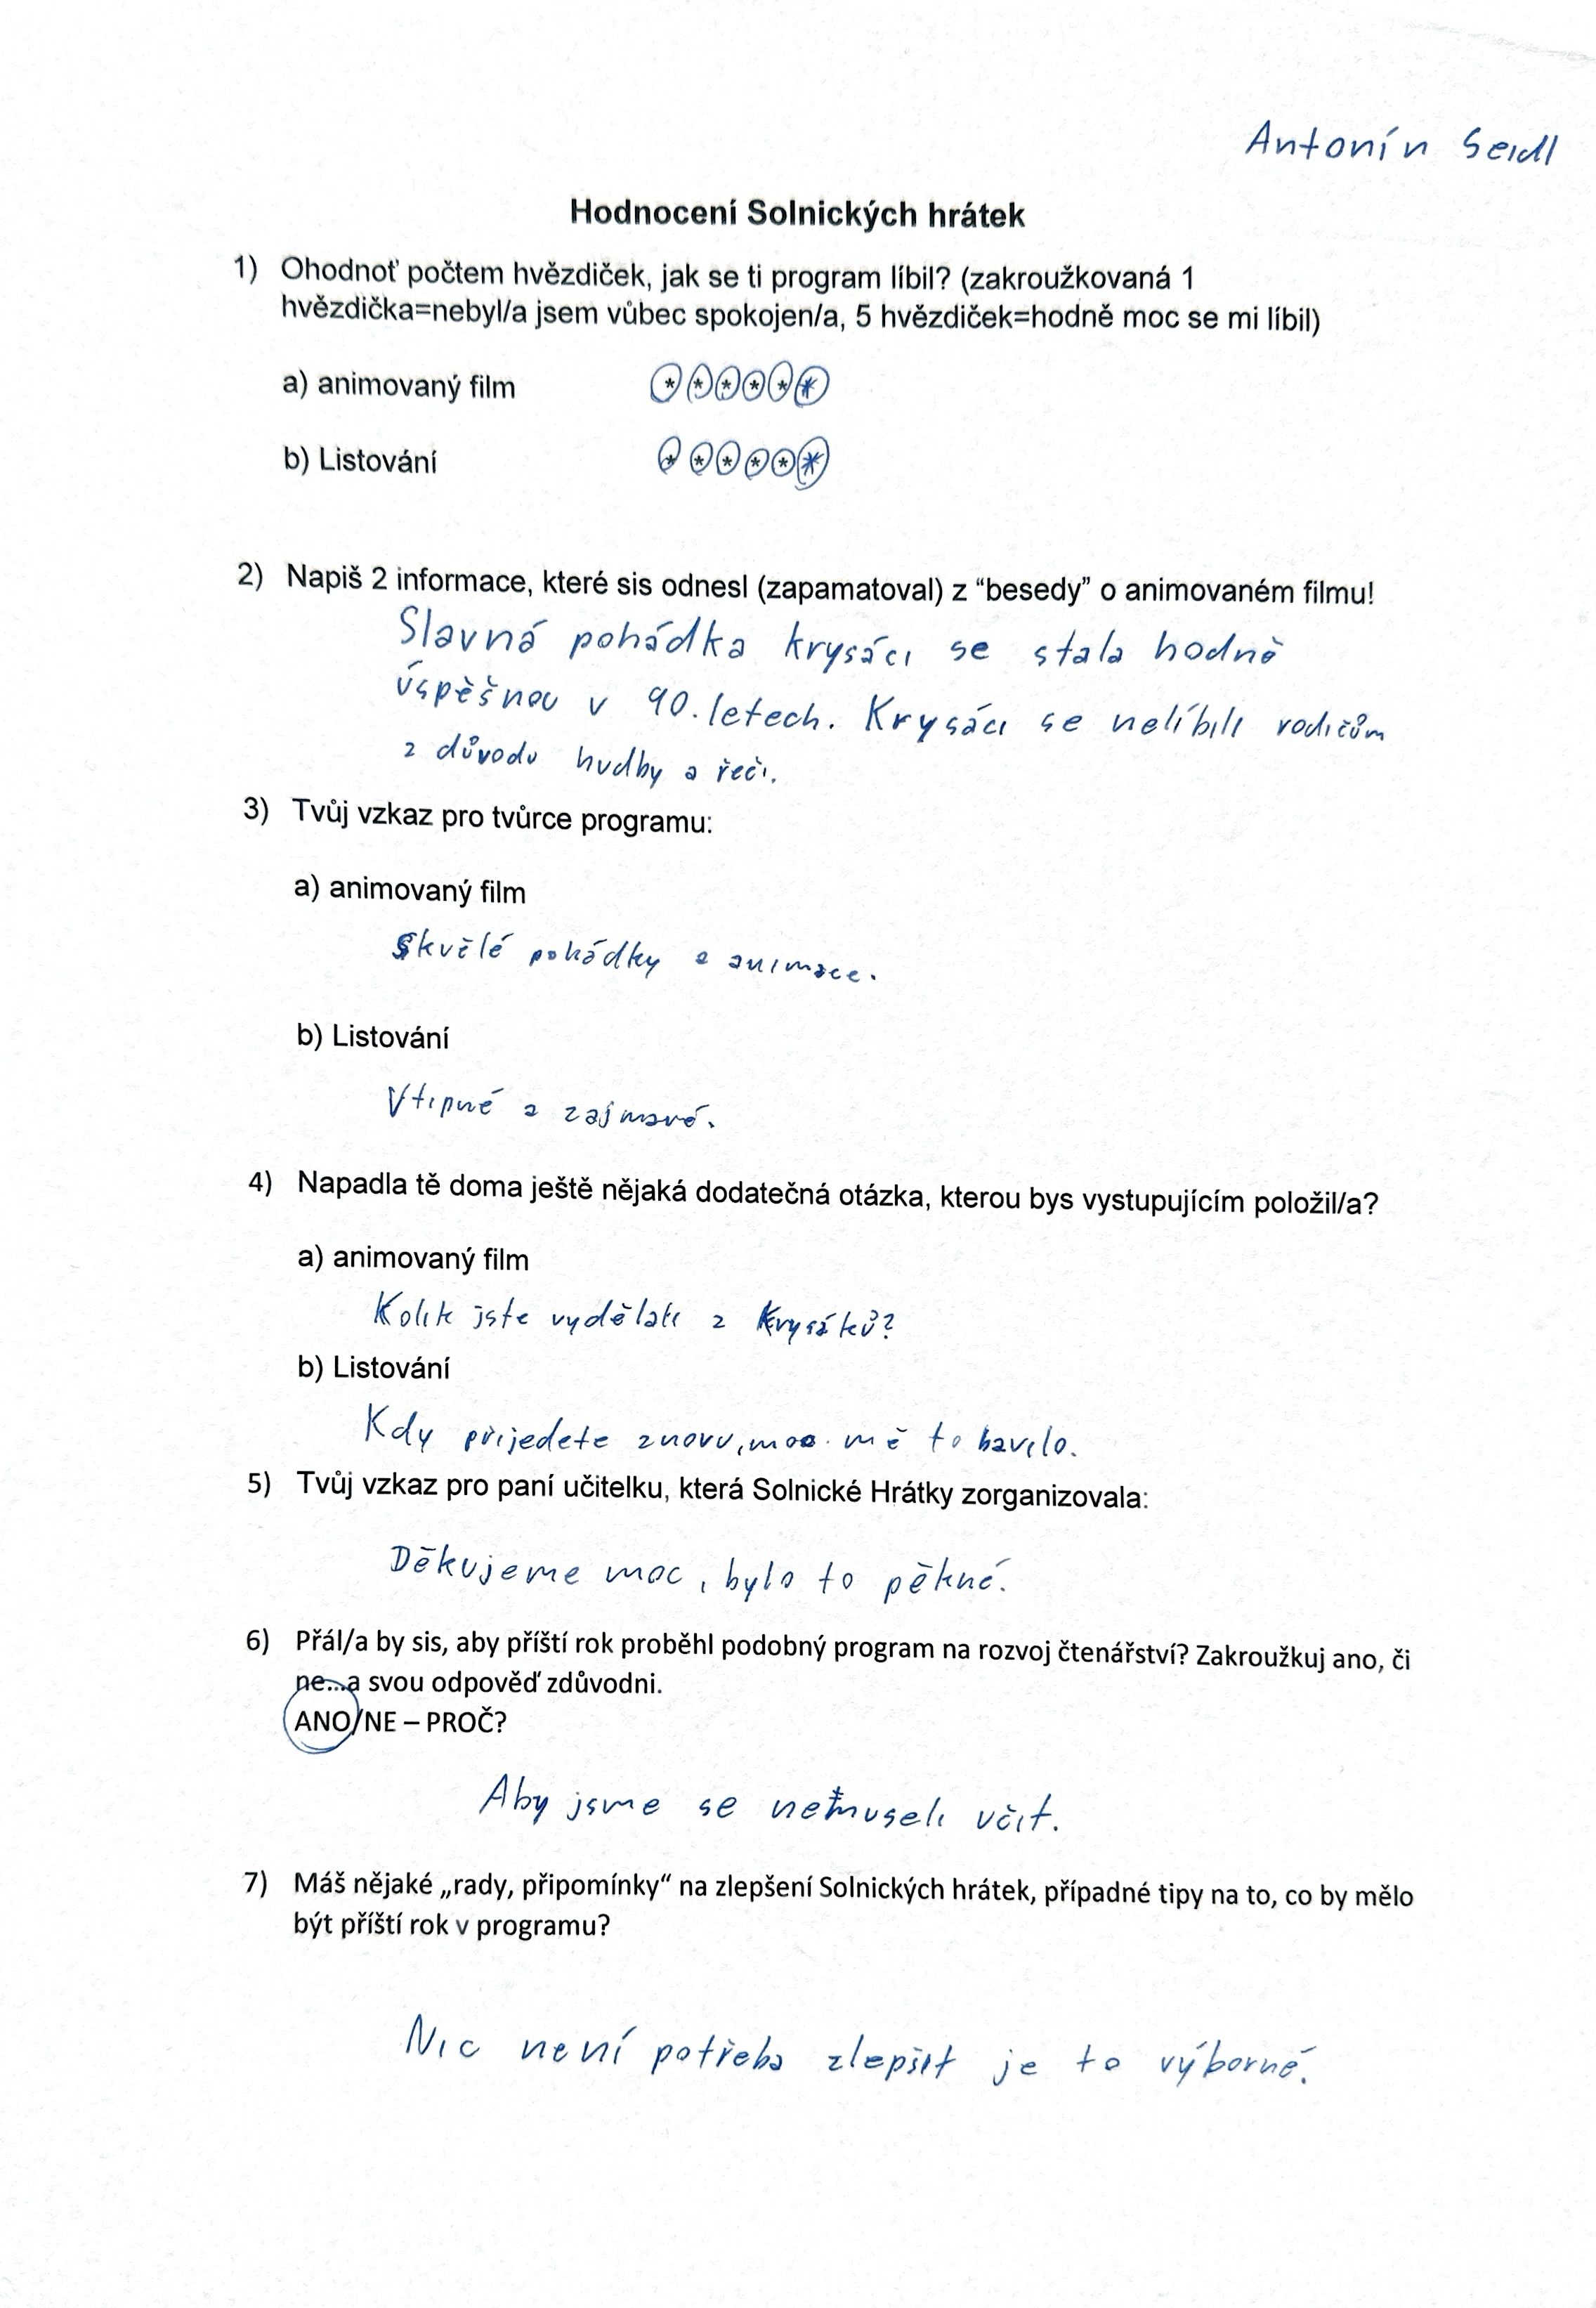 Antonín Seidl
Hodnocení Solnických hrátek
1) Ohodnoť počtem hvězdiček, jak se ti program líbil? (zakroužkovaná 1
hvězdička=nebyl/a jsem vůbec spokojen/a, 5 hvězdiček=hodně moc se mi líbil)
a) animovaný film * * * * * *
b) Listování * * * * * *
2) Napiš 2 informace, které sis odnesl (zapamatoval) z “besedy” o animovaném filmu!
Slavná pohádka krysáci se stala hodně
úspěšnou v 90. letech. Krysáci se nelíbili rodičům
z důvodu hudby a řeči.
3) Tvůj vzkaz pro tvůrce programu:
a) animovaný film
Skvělé pohádky a animace.
b) Listování
Vtipné a zajmavé.
4) Napadla tě doma ještě nějaká dodatečná otázka, kterou bys vystupujícím položil/a?
a) animovaný film
Kolik jste vydělali z Krysáků?
b) Listování
Kdy přijedete znovu, moc mě to bavilo.
5) Tvůj vzkaz pro paní učitelku, která Solnické Hrátky zorganizovala:
Děkujeme moc, bylo to pěkné.
6) Přál/a by sis, aby příští rok proběhl podobný program na rozvoj čtenářství? Zakroužkuj ano, či
ne...a svou odpověď zdůvodni.
ANO/NE – PROČ?
Aby jsme se nemuseli učit.
7) Máš nějaké „rady, připomínky“ na zlepšení Solnických hrátek, případné tipy na to, co by mělo
být příští rok v programu?
Nic není potřeba zlepšit je to výborné.